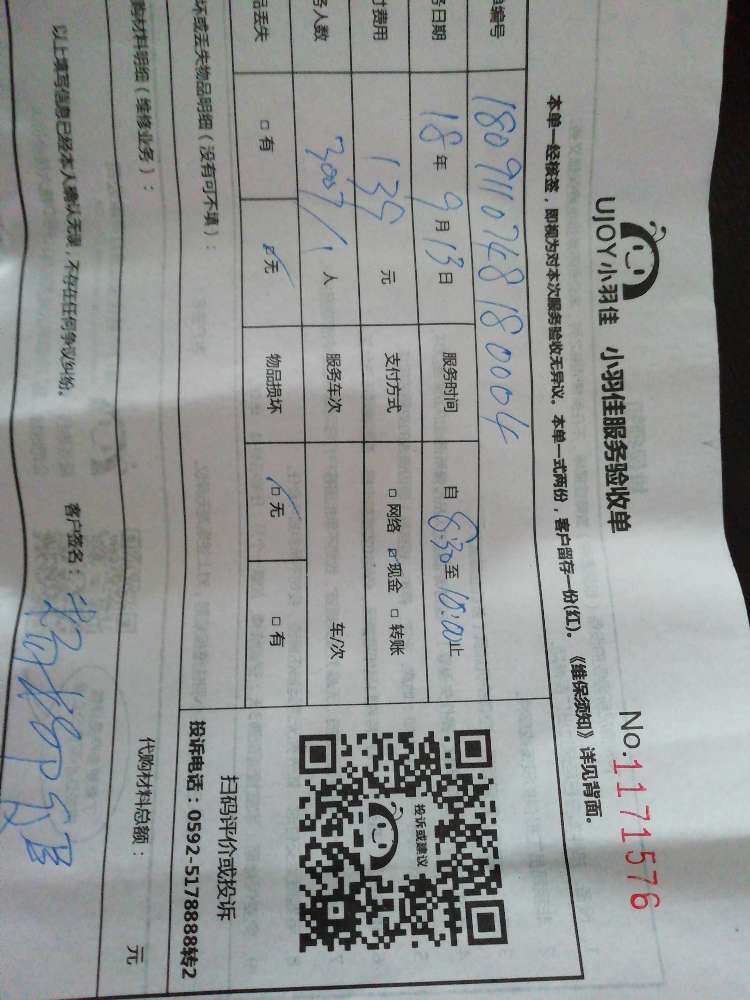 UJOY小羽佳 小羽佳服务验收单 No.1171576
本单一经核签，即视为对本次服务验收无异议。本单一式两份，客户留存一份(红)。《维保须知》详见背面。
编号 1809110748180004
日期 18年9月13日 服务时间 自8:30至10:00止
费用 135元 支付方式 □网络 ☑现金 □转账
人数 人 服务车次 车/次
品丢失 □有 ☑无 物品损坏 ☑无 □有
投诉或建议
扫码评价或投诉
投诉电话：0592-5178888转2
坏或丢失物品明细（没有可不填）：
购材料明细（维修业务）： 代购材料总额： 元
以上填写信息已经本人确认无误，不存在任何争议纠纷。 客户签名：